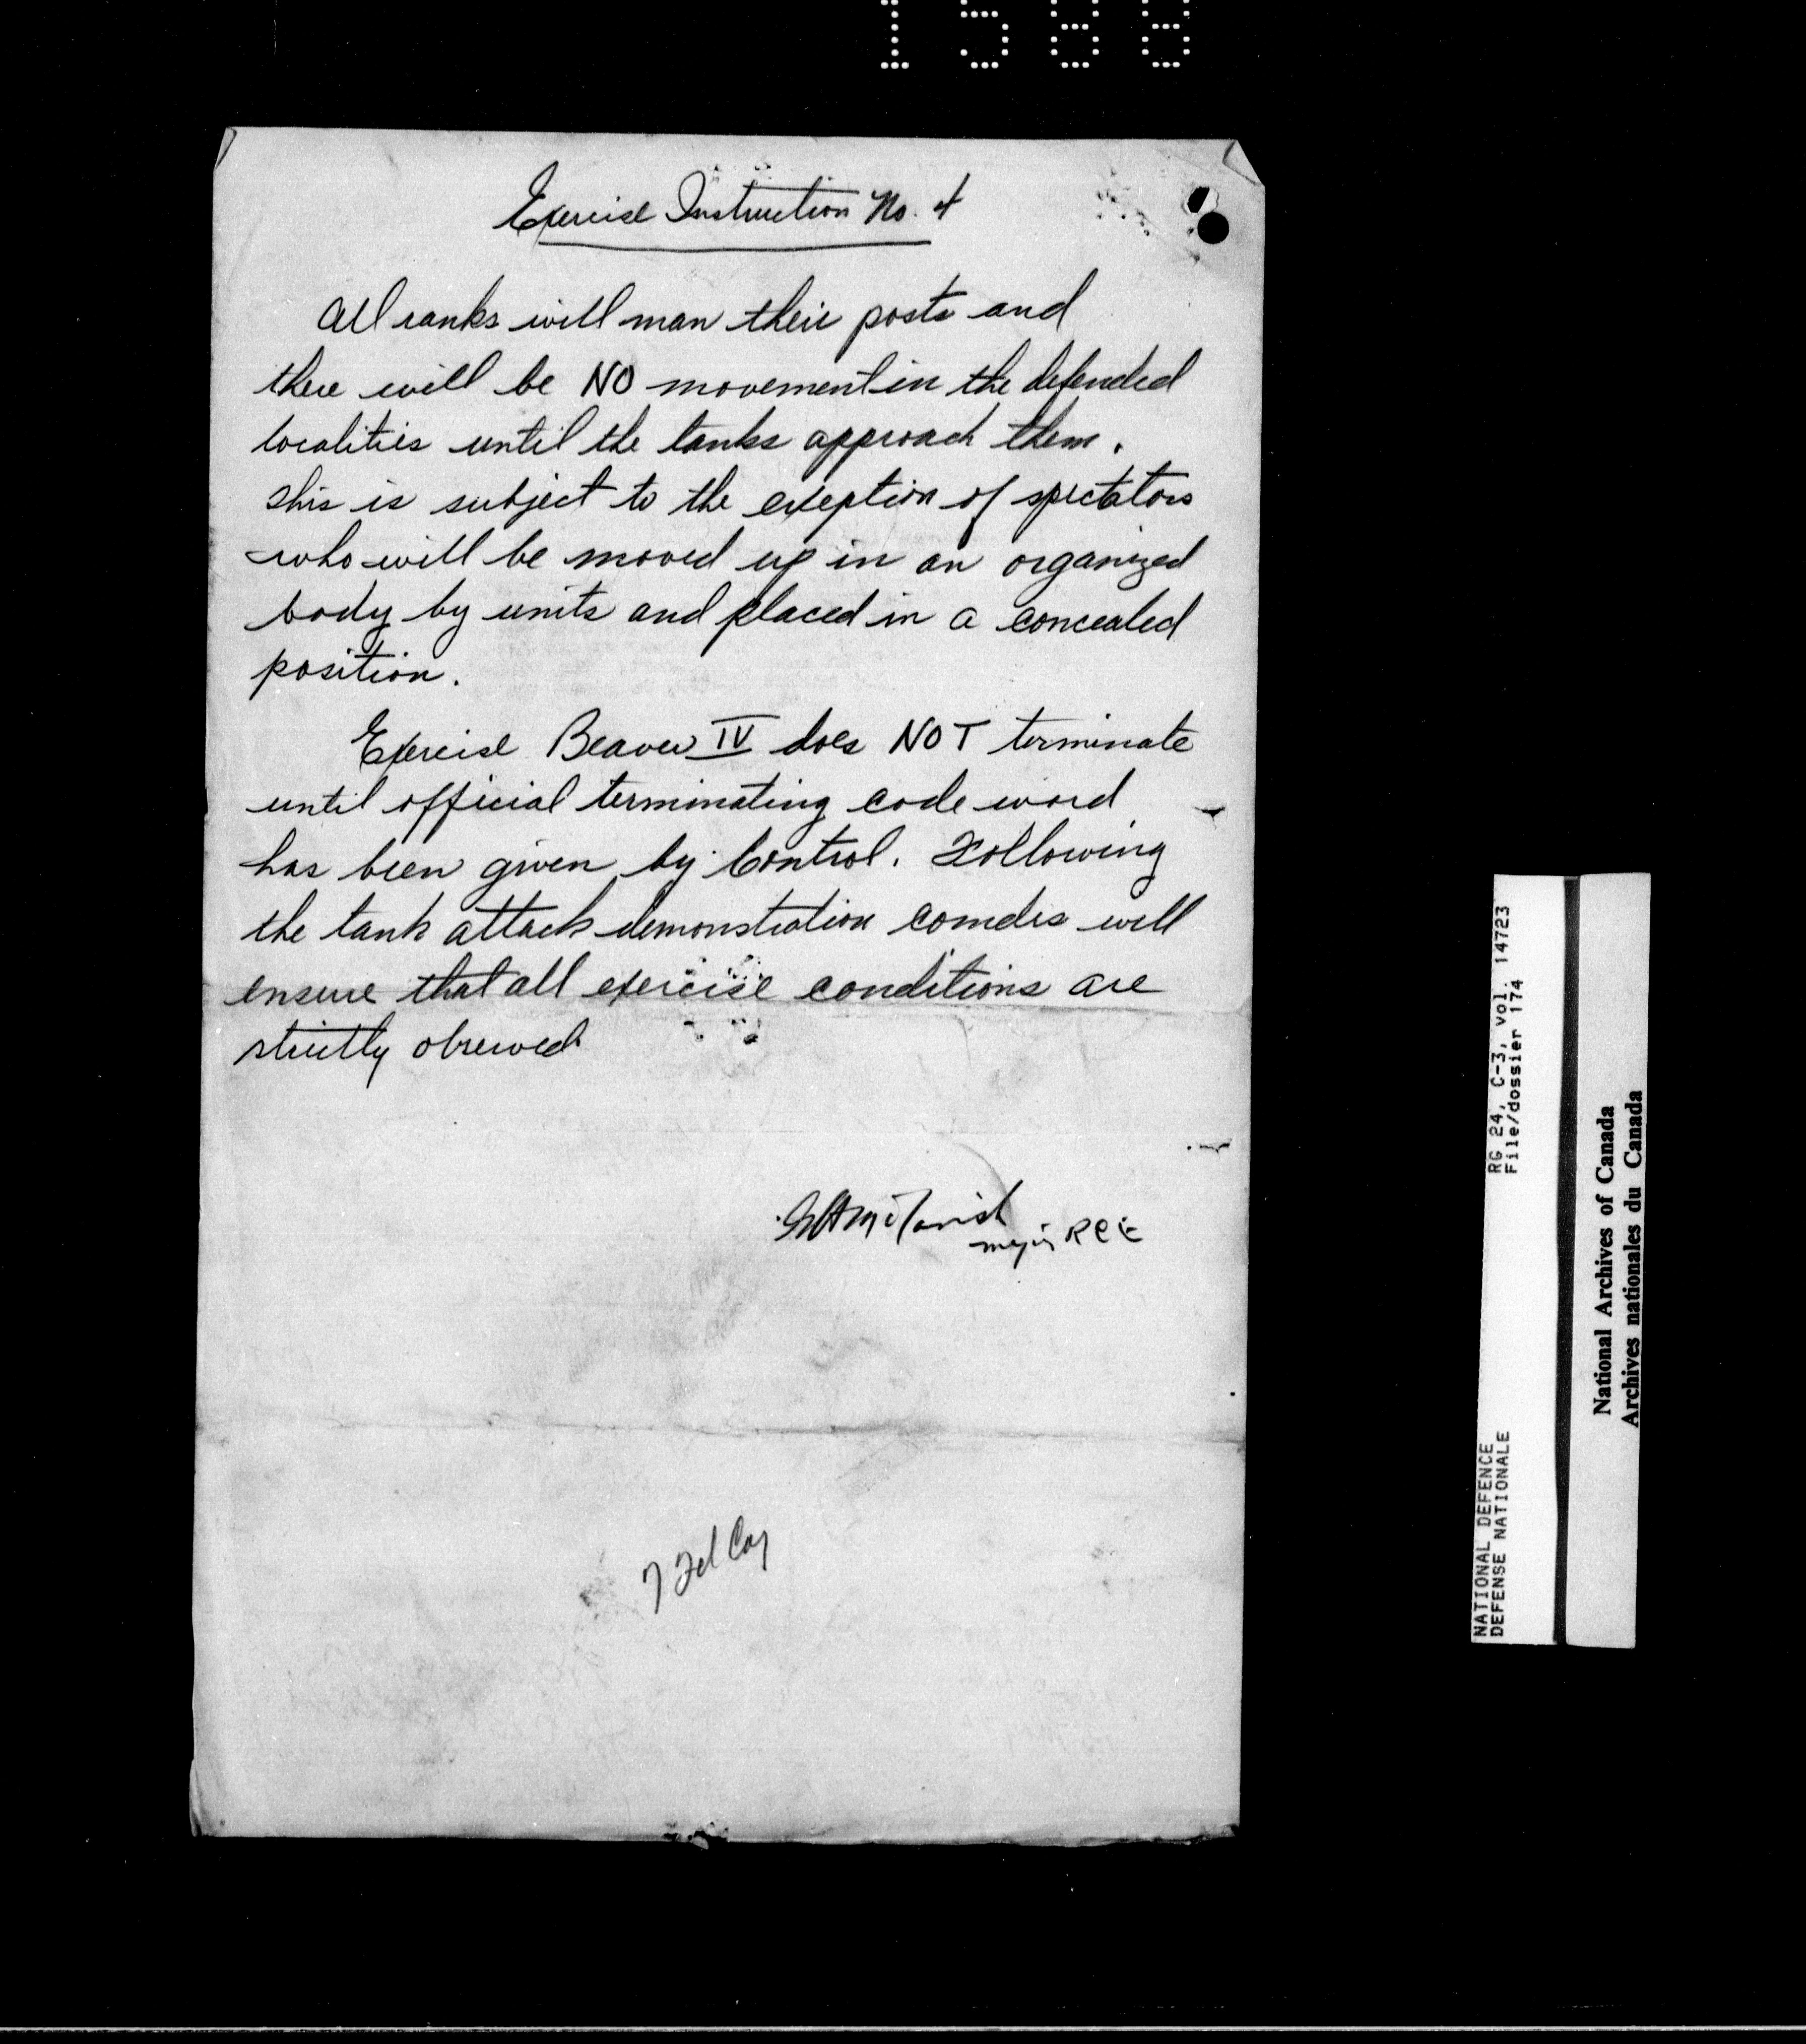 1588
Exercise Instruction No. 4
All ranks will man their posts and
there will be NO movement in the defended
localities until the tanks approach them.
This is subject to the exeption of spectators
who will be moved up in an organized
body by units and placed in a concealed
position.
Exercise Beaver IV does NOT terminate
until official terminating code word
has been given by Control. Following
the tank attack demonstration comdrs will
ensure that all exercise conditions are
strictly obserwed
McTavish
Major RCE
7 Fd Coy
RG 24, C-3, vol. 14723
File/dossier 174
NATIONAL DEFENCE
DEFENSE NATIONALE
National Archives of Canada
Archives nationales du Canada